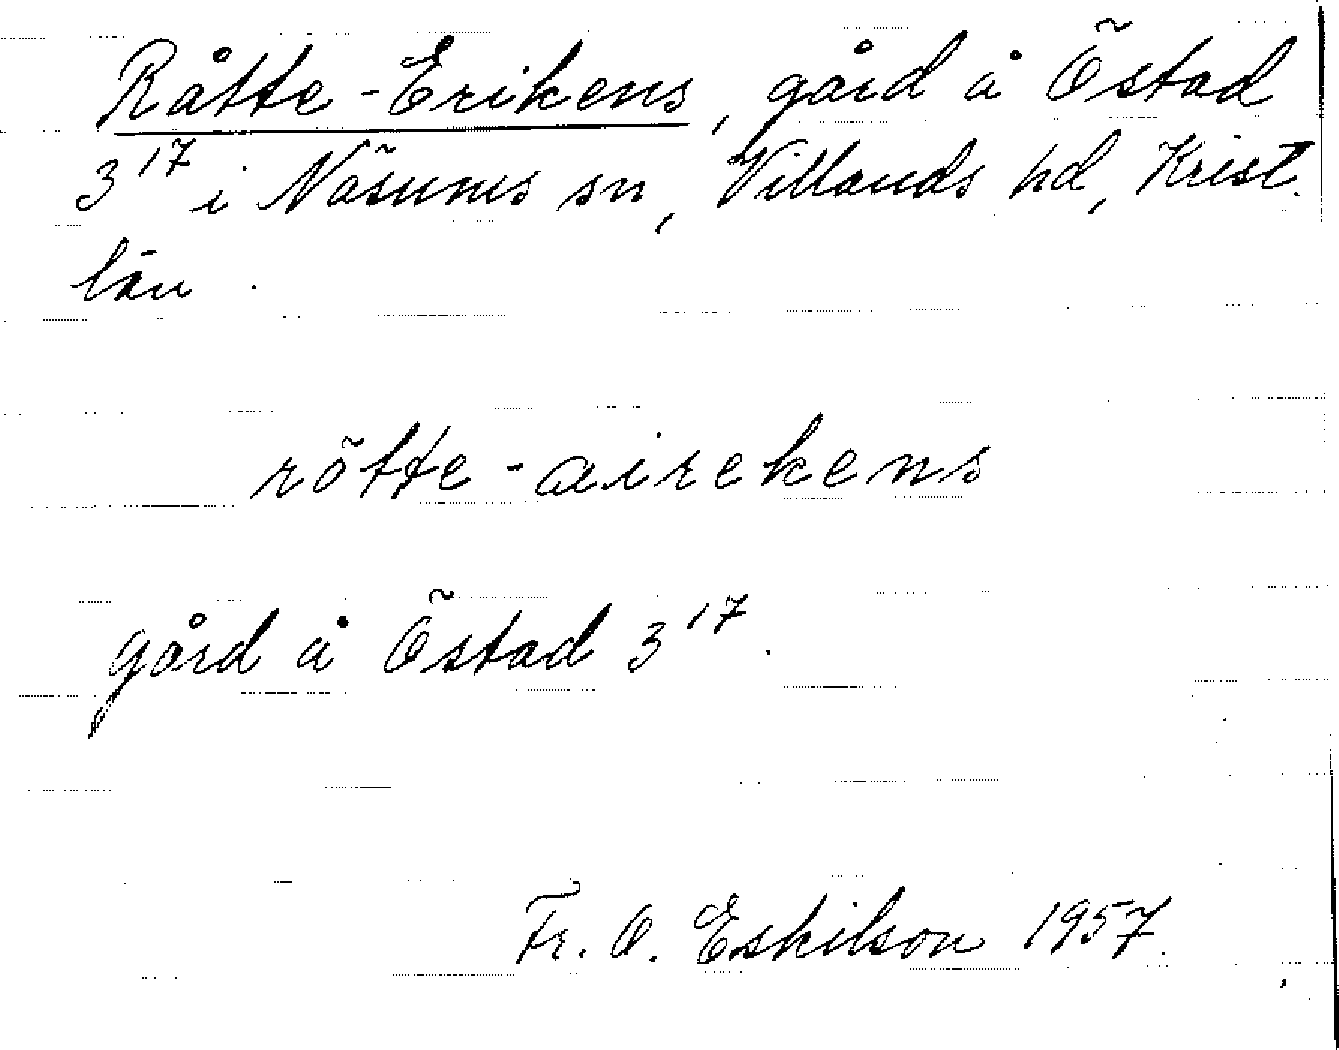 Råtte-Erikens, gård å Östad
3¹⁷ i Näsums sn, Villands hd, Krist.
län.
rötte-airekens
gård å Östad 3¹⁷.
Fr. O. Eskilson 1957.